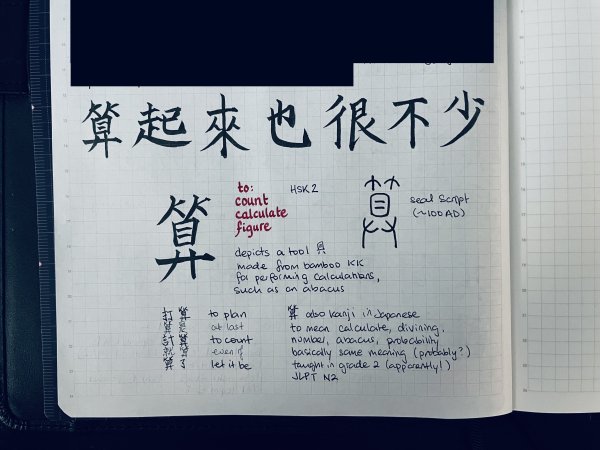 算起來也很不少
算
to:
count
calculate
figure
HSK2
seal script
(~100AD)
depicts a tool 具
made from bamboo KK
for performing calculations,
such as an abacus
打算 to plan
算是 at last
計算 to count
就算 even if
算了 let it be
算 also kanji in Japanese
to mean calculate, divining,
number, abacus, probability
basically same meaning (probably?)
taught in grade 2 (apparently!)
JLPT N2